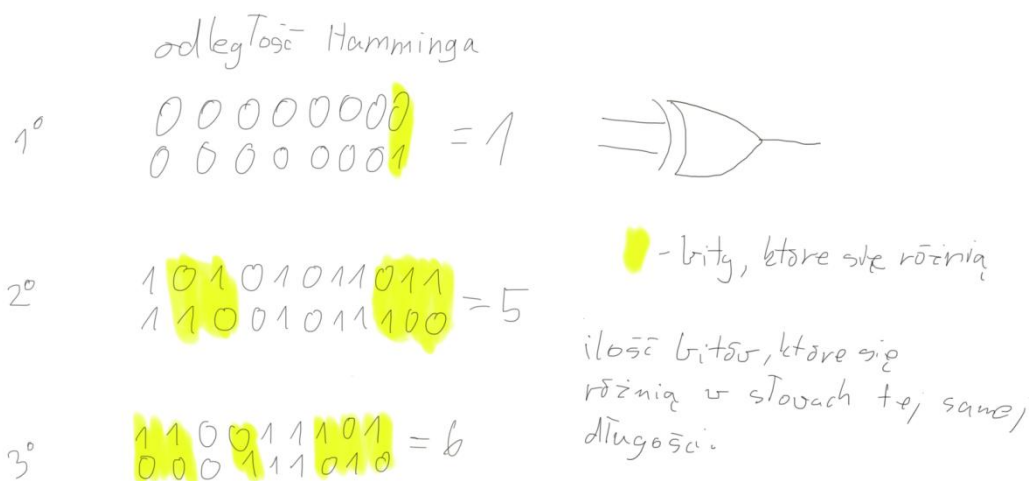 odległość Hamminga
1°
0 0 0 0 0 0 0 0
0 0 0 0 0 0 0 1
= 1
2°
1 0 1 0 1 0 1 1 0 1 1
1 1 0 0 1 0 1 1 1 0 0
= 5
3°
1 1 0 0 1 1 1 0 1
0 0 0 1 1 1 0 1 0
= 6
- bity, które się różnią
ilość bitów, które się
różnią w słowach tej samej
długości.